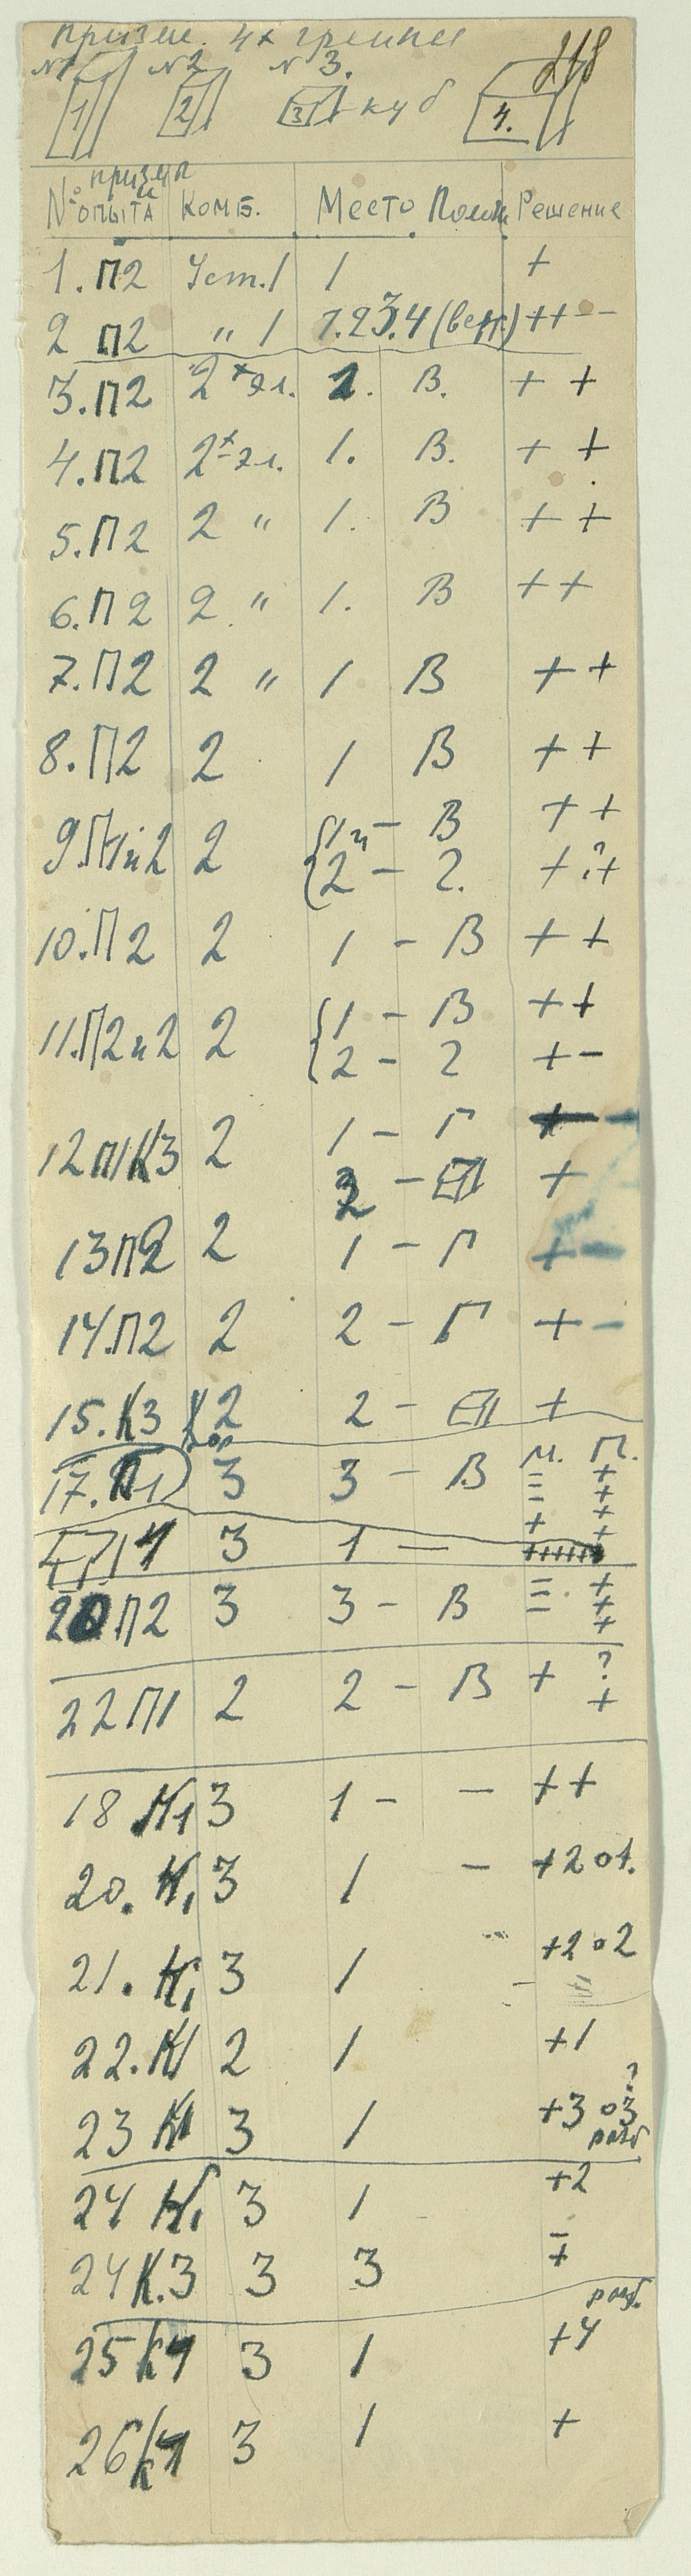 призм. 4х
№1 №2 № 3. 218
1 2 3 - куб 4.
призмы
№ опыта Комб. Место Полож Решение
1. П2 Уст. 1 1 +
2 П2 " 1 1.2 3.4 (верт) ++--
3. П2 2х эл. 1. В. + +
4. П2 2х эл. 1. В. + +
5. П2 2 " 1. В ++
6. П2 2 " 1. В ++
7. П2 2 " 1 В ++
8. П2 2 1 В ++
9. П1и2 2 {1 и - В ++
{2 - Г. + ? +
10. П2 2 1 - В ++
11. П2и2 2 {1 - В ++
{2 - Г +-
12 П1К3 2 1 - Г + -
2 - +
13 П2 2 1 - Г + -
14. П2 2 2 - Г + -
15. К3 2 2 - +
м. П.
17. П1 3 3 - В = - + + + + +
4 3 1 — ++++++
20 П2 3 3 - В = - + + +
22 П1 2 2 - В + ? +
18 К1 3 1 - - ++
20. К1 3 1 - +2 о1.
21. К1 3 1 - +2 о2
22. К1 2 1 +1
23 К1 3 1 +3 о3 ?
разб
24 К1 3 1 +2
24 К.3 3 3 - +
разб.
25 К4 3 1 +4
26 К4 3 1 +